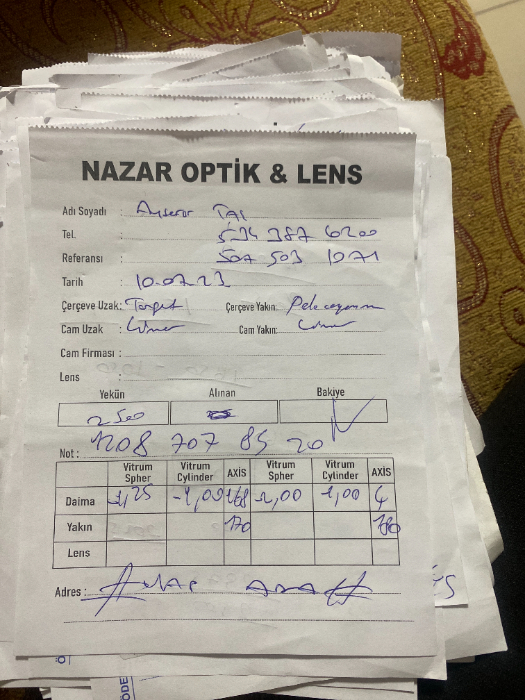 NAZAR OPTİK & LENS
Adı Soyadı :
Tel. : 534 387 6200
Referansı : 507 503 1071
Tarih : 10.07.23
Çerçeve Uzak: Çerçeve Yakın:
Cam Uzak : Cam Yakın:
Cam Firması :
Lens :
Yekün Alınan Bakiye
2500
Not : 1208 707 85 20
Vitrum Spher Vitrum Cylinder AXİS Vitrum Spher Vitrum Cylinder AXİS
Daima 1,25 -1,00 168 2,00 1,00 4
Yakın 170 180
Lens
Adres :
ÖDE